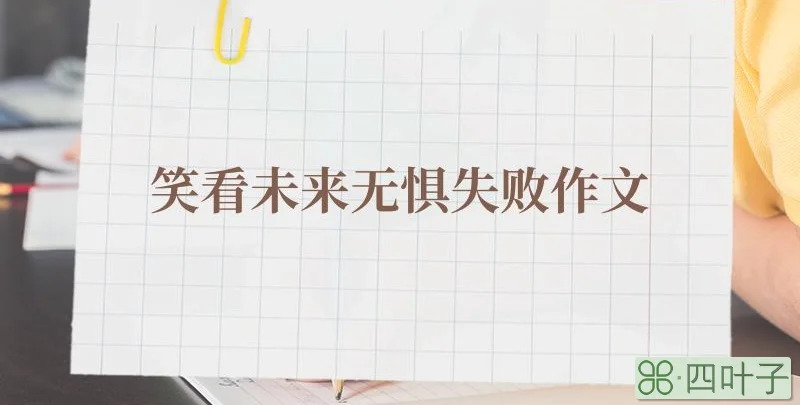 笑看未来无惧失败作文
四叶子